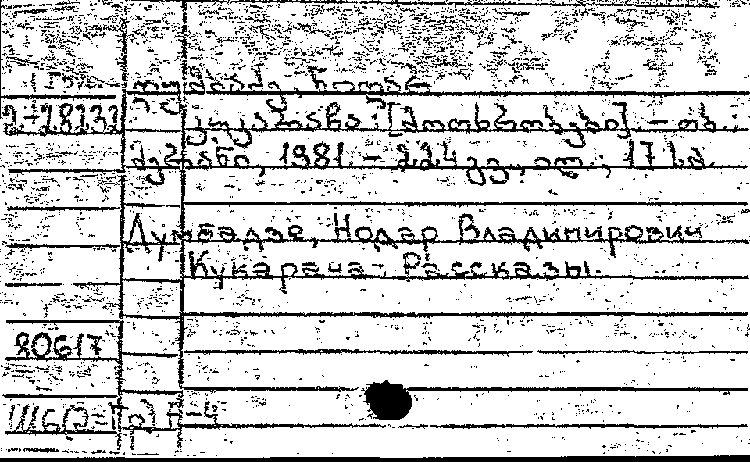 დუმბაძე, ნოდარ
2-28232 კუკარაჩა: [მოთხრობები] – თბ.:
მერანი, 1981. – 224 გვ., ილ.; 17 სმ
Думбадзе, Нодар Владимирович
Кукарача: Рассказы.
80617